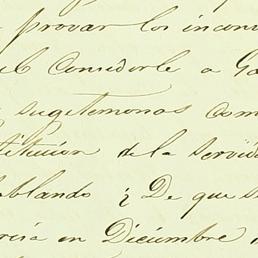 provar los incon
Concederle a Ga
sugetemonos com
titucion de la servid
oblando ¿ De que s
en Diciembre